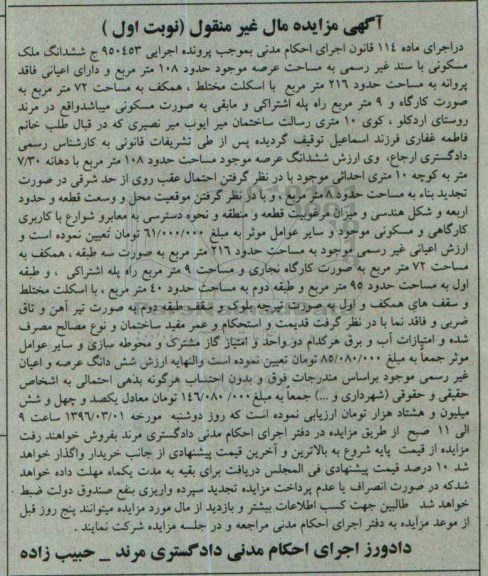 آگهی مزایده مال غیر منقول (نوبت اول )
دراجرای ماده ۱۱۴ قانون اجرای احکام مدنی بموجب پرونده اجرایی ۹۵۰۴۵۳ ج ششدانگ ملک
مسکونی با سند غیر رسمی به مساحت عرصه موجود حدود ۱۰۸ متر مربع و دارای اعیانی فاقد
پروانه به مساحت حدود ۲۱۶ متر مربع با اسکلت مختلط ، همکف به مساحت ۷۲ متر مربع به
صورت کارگاه و ۹ متر مربع راه پله اشتراکی و مابقی به صورت مسکونی میباشدواقع در مرند
روستای اردکلو ، کوی ۱۰ متری رسالت ساختمان میر ایوب میر نصیری که در قبال طلب خانم
فاطمه غفاری فرزند اسماعیل توقیف گردیده پس از طی تشریفات قانونی به کارشناس رسمی
دادگستری ارجاع، وی ارزش ششدانگ عرصه موجود مساحت حدود ۱۰۸ متر مربع با دهانه ۷/۳۰
متر به کوچه ۱۰ متری احداثی موجود با در نظر گرفتن احتمال عقب روی از حد شرقی در صورت
تجدید بناء به مساحت حدود۸ متر مربع ، و با در نظر گرفتن موقعیت محل و وسعت قطعه و حدود
اربعه و شکل هندسی و میزان مرغوبیت قطعه و منطقه و نحوه دسترسی به معابرو شوارع با کاربری
کارگاهی و مسکونی موجود و سایر عوامل موثر به مبلغ ۶۱/۰۰۰/۰۰۰ تومان تعیین نموده است و
ارزش اعیانی غیر رسمی موجود به مساحت حدود ۲۱۶ متر مربع به صورت سه طبقه ، همکف به
مساحت ۷۲ متر مربع به صورت کارگاه نجاری و مساحت ۹ متر مربع راه پله اشتراکی ، و طبقه
اول به مساحت حدود ۹۵ متر مربع و طبقه دوم به مساحت حدود ۴۰ متر مربع ، با اسکلت مختلط
و سقف های همکف و اول به صورت تیرچه بلوک و سقف طبقه دوم به صورت تیر آهن و تاق
ضربی و فاقد نما با در نظر گرفت قدیمت و استحکام و عمر مفید ساختمان و نوع مصالح مصرف
شده و امتیازات آب و برق هرکدام دو واحد و امتیاز گاز مشترک و محوطه سازی و سایر عوامل
موثر جمعاً به مبلغ ۸۵/۰۸۰/۰۰۰ تومان تعیین نموده است والنهایه ارزش شش دانگ عرصه و اعیان
غیر رسمی موجود براساس مندرجات فوق و بدون احتساب هرگونه بدهی احتمالی به اشخاص
حقیقی و حقوقی (شهرداری و ...) جمعاً به مبلغ ۱۴۶/۰۸۰/۰۰۰ تومان معادل یکصد و چهل و شش
میلیون و هشتاد هزار تومان ارزیابی نموده است که روز دوشنبه مورخه ۱۳۹۶/۰۳/۰۱ ساعت ۹
الی ۱۱ صبح از طریق مزایده در دفتر اجرای احکام مدنی دادگستری مرند بفروش خواهند رفت
مزایده از قیمت پایه شروع به بالاترین و آخرین قیمت پیشنهادی از جانب خریدار واگذار خواهد
شد ۱۰ درصد قیمت پیشنهادی فی المجلس دریافت برای بقیه به مدت یکماه مهلت داده خواهد
شدکه در صورت انصراف یا عدم پرداخت مزایده تجدید سپرده واریزی بنفع صندوق دولت ضبط
خواهد شد طالبین جهت کسب اطلاعات بیشتر و بازدید از مال مورد مزایده میتوانند پنج روز قبل
از موعد مزایده به دفتر اجرای احکام مدنی مراجعه و در جلسه مزایده شرکت نمایند .
دادورز اجرای احکام مدنی دادگستری مرند _ حبیب زاده